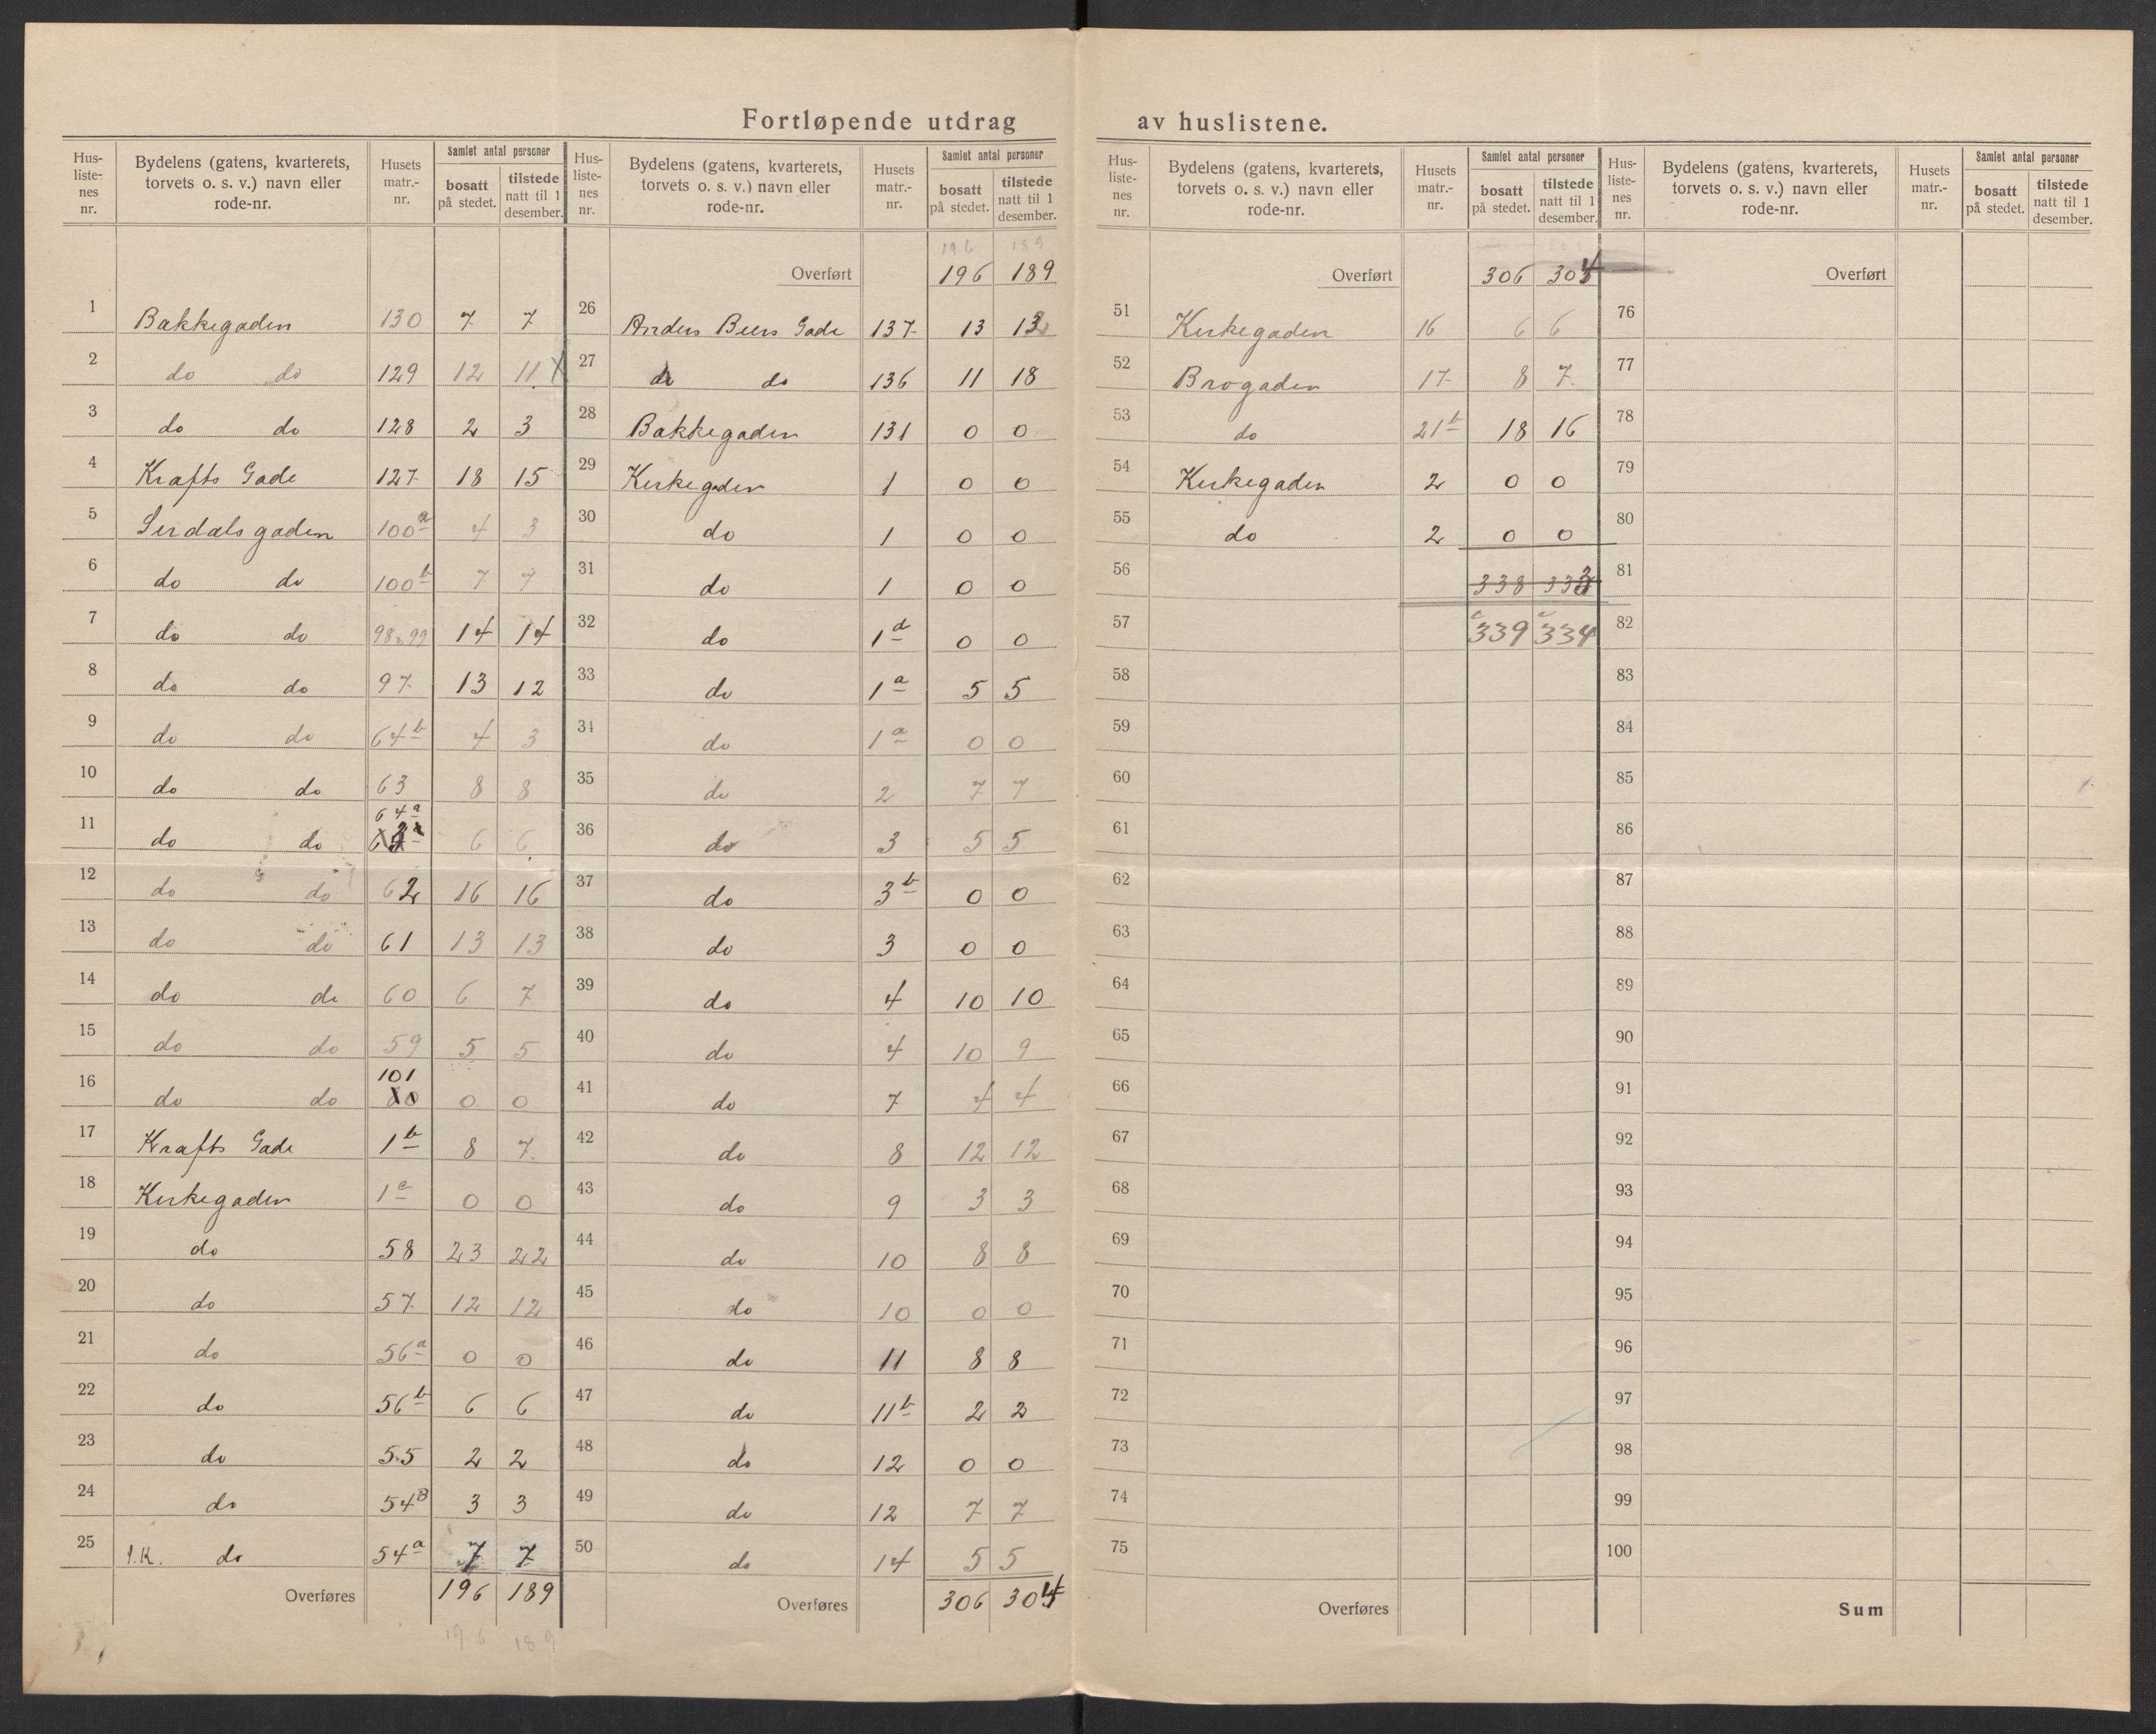 Fortløpende utdrag av huslistene.
Hus-listenes nr. | Bydelens (gatens, kvarterets, torvets o. s. v.) navn eller rode-nr. | Husets matr.-nr. | Samlet antal personer bosatt på stedet. | tilstede natt til 1 desember.
1 Bakkegaden 130 7 7
2 do do 129 12 11
3 do do 128 2 3
4 Krafts Gade 127 18 15
5 Sirdalsgaden 100a 4 3
6 do do 100b 7 7
7 do do 98 99 14 14
8 do do 97 13 12
9 do do 64b 4 3
10 do do 63 8 8
11 do do 64a 6 6
12 do do 62 16 16
13 do do 61 13 13
14 do do 60 6 7
15 do do 59 5 5
16 do do 101 0 0
17 Krafts Gade 1b 8 7
18 Kirkegaden 1c 0 0
19 do 58 23 22
20 do 57 12 12
21 do 56a 0 0
22 do 56b 6 6
23 do 55 2 2
24 do 54B 3 3
25 I.K. do 54a 7 7
Overføres 196 189
196 189
Hus-listenes nr. | Bydelens (gatens, kvarterets, torvets o. s. v.) navn eller rode-nr. | Husets matr.-nr. | Samlet antal personer bosatt på stedet. | tilstede natt til 1 desember.
196 189
Overført 196 189
26 Anders Beers Gade 137 13 13
27 do do 136 11 18
28 Bakkegaden 131 0 0
29 Kirkegaden 1 0 0
30 do 1 0 0
31 do 1 0 0
32 do 1d 0 0
33 do 1a 5 5
34 do 1a 0 0
35 do 2 7 7
36 do 3 5 5
37 do 3b 0 0
38 do 3 0 0
39 do 4 10 10
40 do 4 10 9
41 do 7 4 4
42 do 8 12 12
43 do 9 3 3
44 do 10 8 8
45 do 10 0 0
46 do 11 8 8
47 do 11b 2 2
48 do 12 0 0
49 do 12 7 7
50 do 14 5 5
Overføres 306 304
Hus-listenes nr. | Bydelens (gatens, kvarterets, torvets o. s. v.) navn eller rode-nr. | Husets matr.-nr. | Samlet antal personer bosatt på stedet. | tilstede natt til 1 desember.
Overført 306 304
51 Kirkegaden 16 6 6
52 Brogaden 17 8 7
53 do 21b 18 16
54 Kirkegaden 2 0 0
55 do 2 0 0
56 338 333
57 339 334
58
59
60
61
62
63
64
65
66
67
68
69
70
71
72
73
74
75
Overføres
Hus-listenes nr. | Bydelens (gatens, kvarterets, torvets o. s. v.) navn eller rode-nr. | Husets matr.-nr. | Samlet antal personer bosatt på stedet. | tilstede natt til 1 desember.
Overført
76
77
78
79
80
81
82
83
84
85
86
87
88
89
90
91
92
93
94
95
96
97
98
99
100
Sum